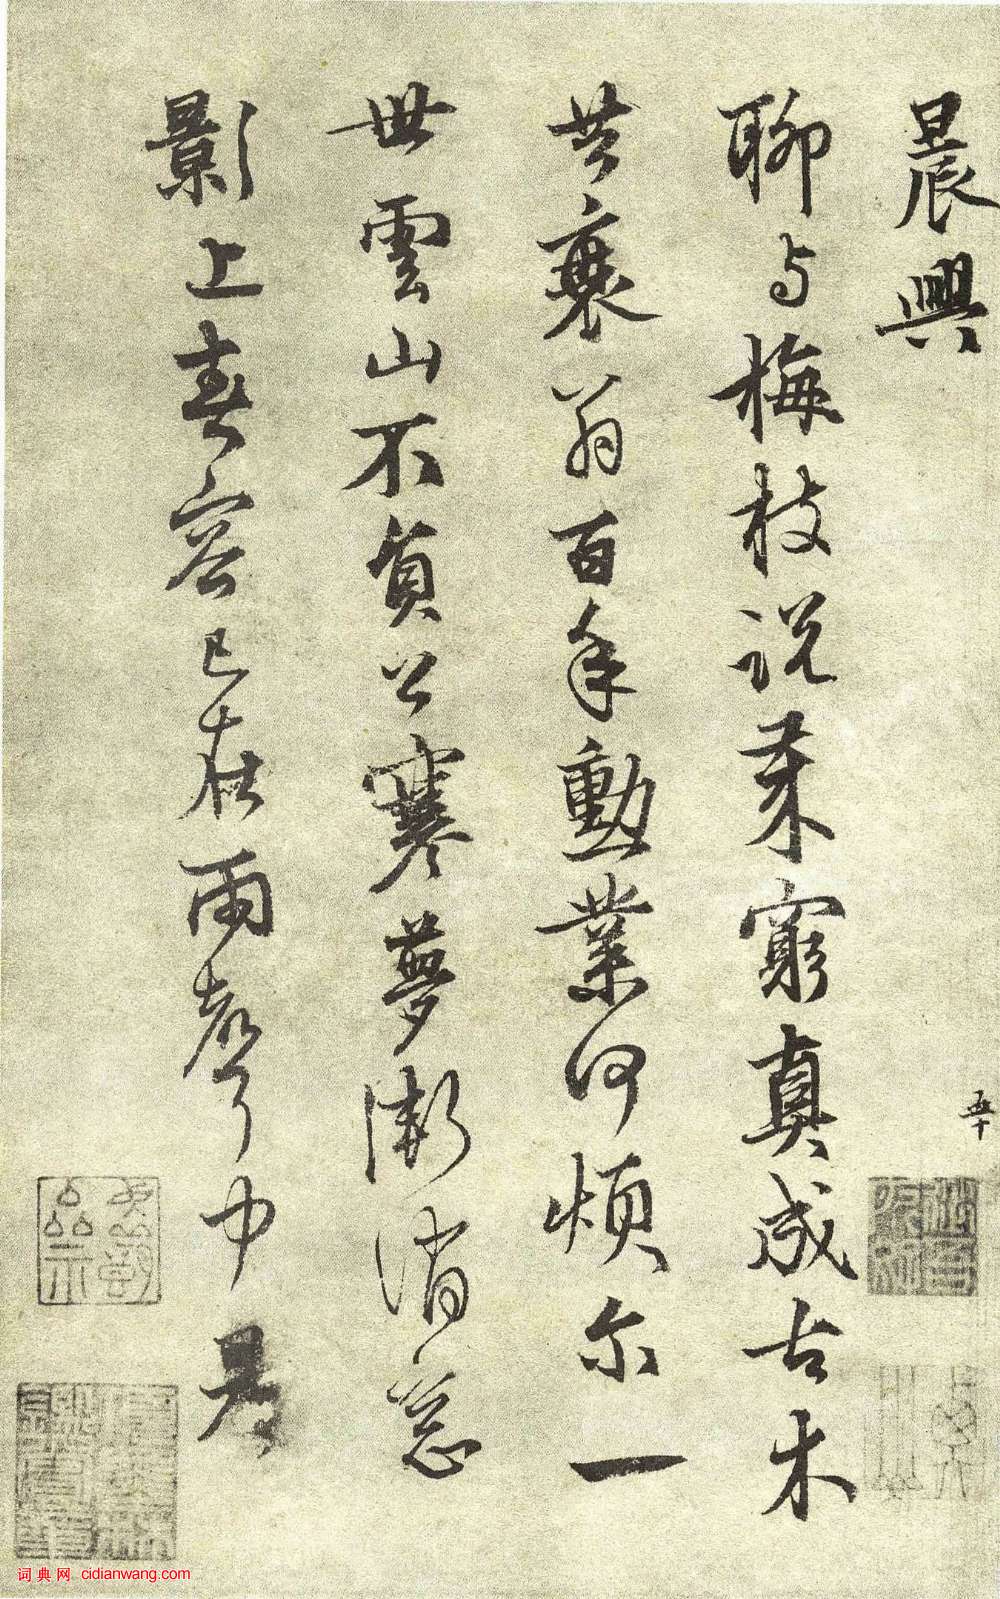 晨興
聊与梅枝説窮真成古木
共衰翁百年勳業何煩尔一
世雲山不負公寒夢漸消窓
影上春容已在雨聲中
五十
词典网 cidianwang.com